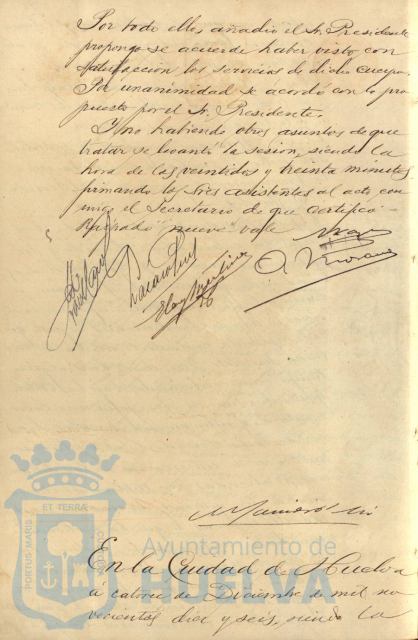 Por todo ello, añadió el Sr. Presidente
propongo se acuerde haber visto con
satisfacción los servicios de dicho cuerpo.
Por unanimidad se acordó con lo pro
puesto por el Sr. Presidente.
Y no habiendo otros asuntos de que
tratar se levantó la sesión, siendo la
hora de las veintidos y treinta minutos
firmando los Sres asistentes al acto con
migo el Secretario de que certifico
nueve vale
ET TERRÆ
PORTUS MARIS
CUSTODIA
Ayuntamiento de
HUELVA
En la Ciudad de Huelva
á catorce de Diciembre de mil no
vecientos diez y seis, siendo la